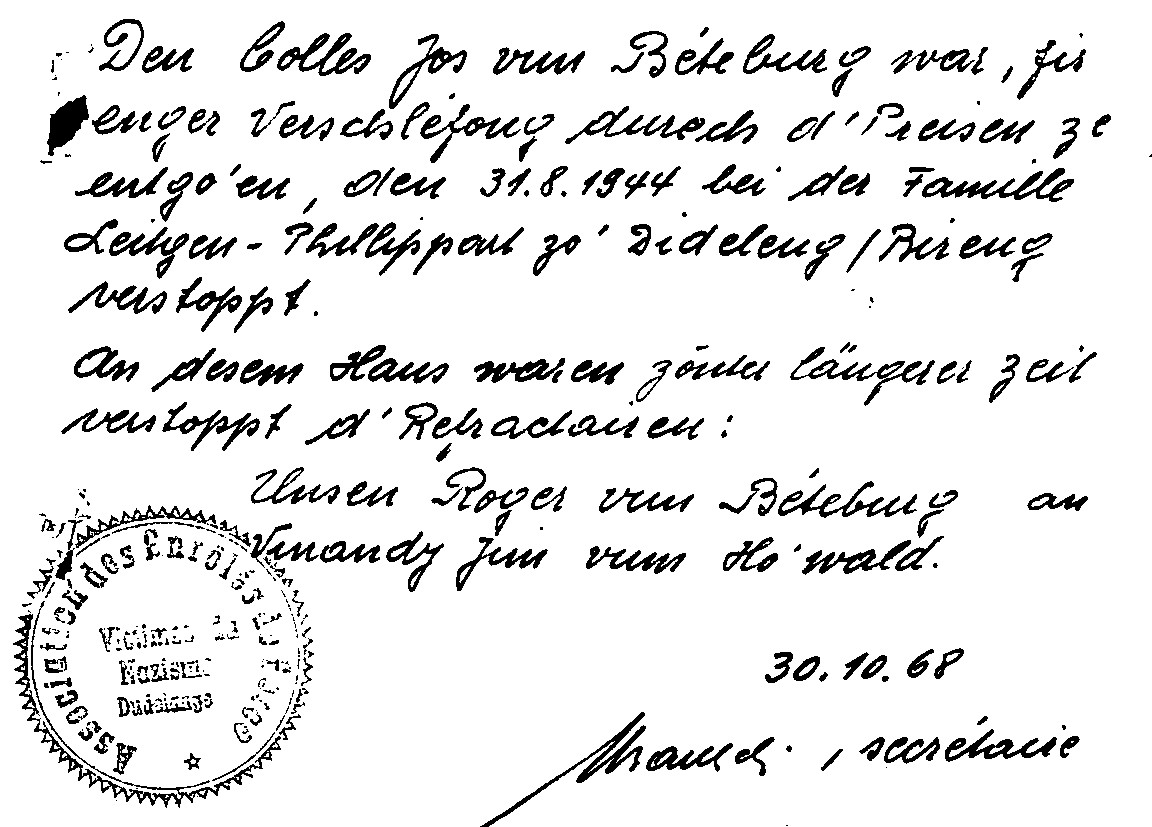 Den Colles Jos vun Béteburg war, fir
enger Verschléfong durech d'Preisen ze
entgo'en, den 31.8.1944 bei der Famille
Leitgen-Phillippart zo' Dideleng/Bireng
verstoppt.
An desem Haus waren zönter längerer Zeit
verstoppt d'Refractairen:
Unsen Roger vun Béteburg an
Vinandy Jim vum Ho'wald.
Association des Enrôlés de Force
Victimes du
Nazisme
Dudelange
30.10.68
, secrétaire